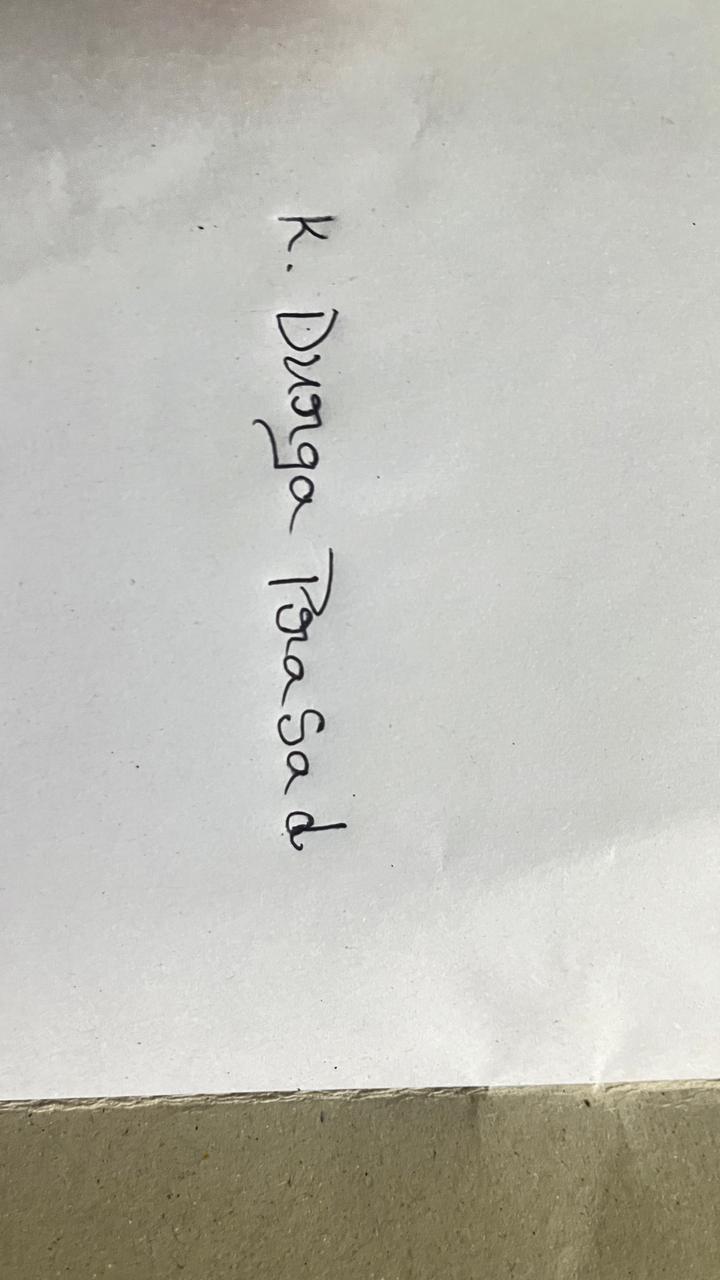 K. Durga Prasad